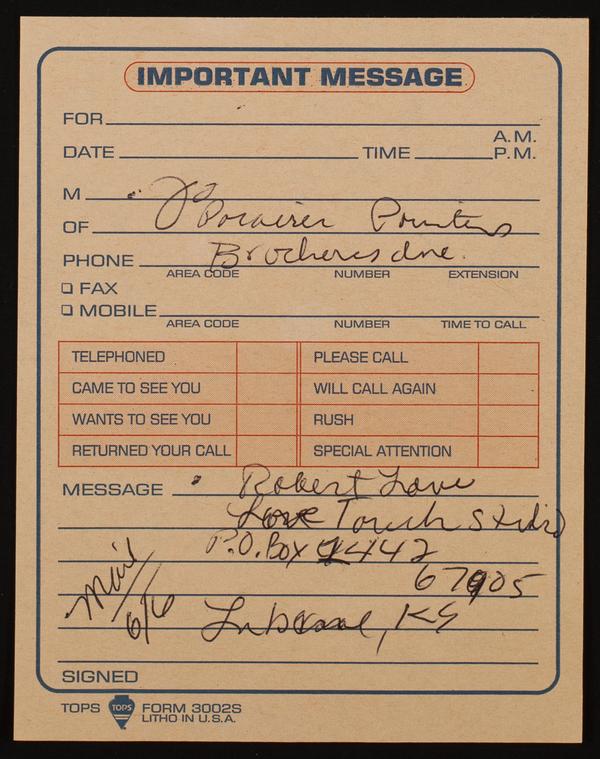 IMPORTANT MESSAGE
FOR
A.M.
DATE TIME P.M.
M
OF
PHONE
AREA CODE NUMBER EXTENSION
☐ FAX
☐ MOBILE
AREA CODE NUMBER TIME TO CALL
TELEPHONED PLEASE CALL
CAME TO SEE YOU WILL CALL AGAIN
WANTS TO SEE YOU RUSH
RETURNED YOUR CALL SPECIAL ATTENTION
MESSAGE Robert Love
Love Touch Studio
P.O. Box 1442
67905
Mail
6/6
KS
SIGNED
TOPS TOPS FORM 3002S
LITHO IN U.S.A.